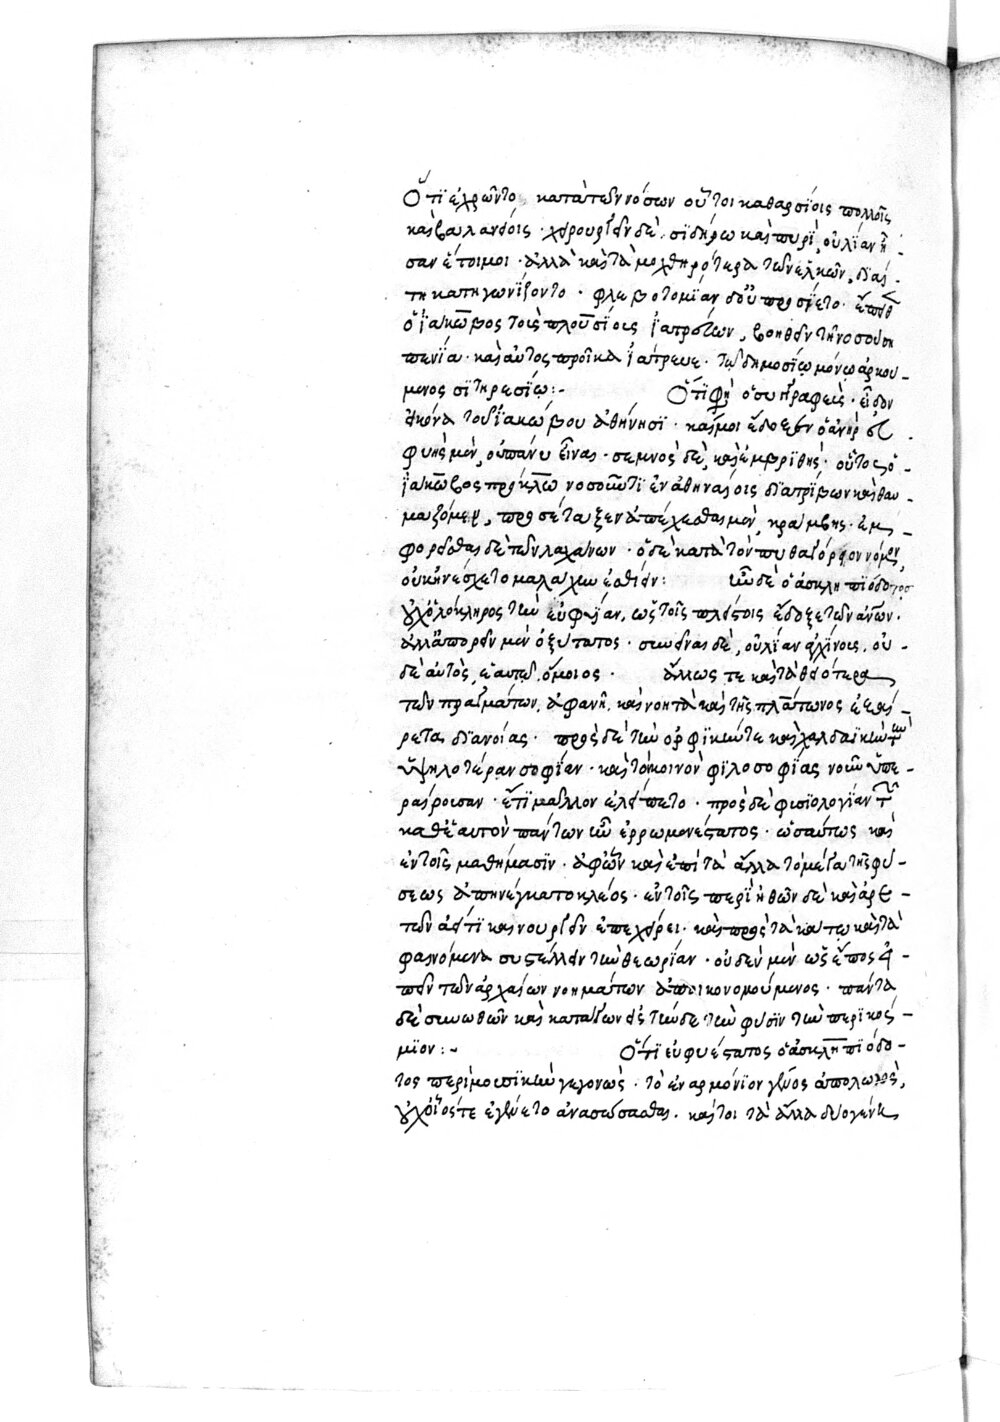 Ὅτι ἐχρῶντο κατὰ τῶν νόσων οὗτοι καθαρσίοις πολλοῖς
καὶ βαλανείοις· χειρουργεῖν δὲ σιδήρῳ καὶ πυρὶ, οὐ λίαν ἦ
σαν ἕτοιμοι· ἀλλὰ καὶ τὰ μοχθηρότερα τῶν ἑλκῶν, διαί-
τῃ κατηγωνίζοντο· φλεβοτομίαν δ' οὐ προσίετο. ἔπειθ
ὁ ἰάκωβος τοῖς πλουσίοις ἰατρεύων, βοηθεῖν τῇ νοσούσῃ
πενίᾳ· καὶ αὐτὸς προῖκα ἰάτρευε· τῷ δημοσίῳ μόνῳ ἀρκού-
μενος σιτηρεσίῳ:- Ὅτι φησὶ ὁ συγγραφεὺς· εἶδον
εἰκόνα τοῦ ἰακώβου ἀθήνησι· καί μοι ἔδοξεν ὁ ἀνὴρ εὐ
φυὴς μὲν, οὐ πάνυ εἶναι· σεμνὸς δὲ, καὶ ἐμβριθής· οὗτος ὁ
ἰάκωβος πρόκλῳ νοσοῦντι ἐν ἀθηναίοις διατρίβων καὶ θαυ
μαζόμενος, προσέταξεν ἀπέχεσθαι μὲν, κράμβης· ἐμ
φορεῖσθαι δὲ τῶν λαχάνων· ὁ δὲ κατὰ τὸν πυθαγόρειον νόμον,
οὐκ ἠνέσχετο μαλάχῃ ἐσθίειν: ἦν δὲ ὁ ἀσκληπιόδοτος
οὐχ' ὁλόκληρος τὴν εὐφυΐαν, ὡς τοῖς πλείοις ἔδοξε τῶν ἀνων·
ἀλλ' ἀπορεῖν μὲν ὀξύτατος· συνεῖναι δὲ, οὐ λίαν ἀγχίνους, οὐ
δὲ αὐτὸς, ἑαυτῷ ὅμοιος· ἄλλως τε καὶ τὰ θειότερα
τῶν πραγμάτων, ἀφανῆ, καὶ νοητὰ καὶ τῆς πλάτωνος ἐξαί-
ρετα διανοίας· πρὸς δὲ τὴν ὀρφικήν τε καὶ χαλδαϊκὴν τὴν
ὑψηλοτέραν σοφίαν· καὶ τὸν κοινὸν φιλοσοφίας νοῦν ὑπε-
ραίρουσαν· ἔτι μᾶλλον ἐλείπετο· πρὸς δὲ φυσιολογίαν τῶν
καθ' ἑαυτὸν πάντων ἦν ἐρρωμενέστατος· ὡσαύτως καὶ
ἐν τοῖς μαθήμασιν· ἀφ' ὧν καὶ ἐπὶ τὰ ἄλλα τὸ μέγα τῆς φύ-
σεως ἀπηνέγκατο κλέος· ἐν τοῖς περὶ ἠθῶν δὲ καὶ ἀρε-
τῶν ἀεί τι καινουργεῖν ἐπεχείρει· καὶ πρὸς τὰ κάτω καὶ τὰ
φαινόμενα συστέλλειν τὴν θεωρίαν· οὐδὲν μὲν ὡς ἔπος εἰ-
πεῖν τῶν ἀρχαίων νοημάτων ἀποικονομούμενος· πάντα
δὲ συνωθῶν καὶ κατάγων εἰς τήνδε τὴν φύσιν τὴν περικόσ-
μιον:- Ὅτι εὐφυέστατος ὁ ἀσκληπιόδο-
τος περὶ μουσικὴν γεγονὼς· τὸ ἐναρμόνιον γένος ἀπολωλὸς,
οὐχ οἷός τε ἐγένετο ἀνασώσασθαι. καίτοι τὰ ἄλλα δύο γένη